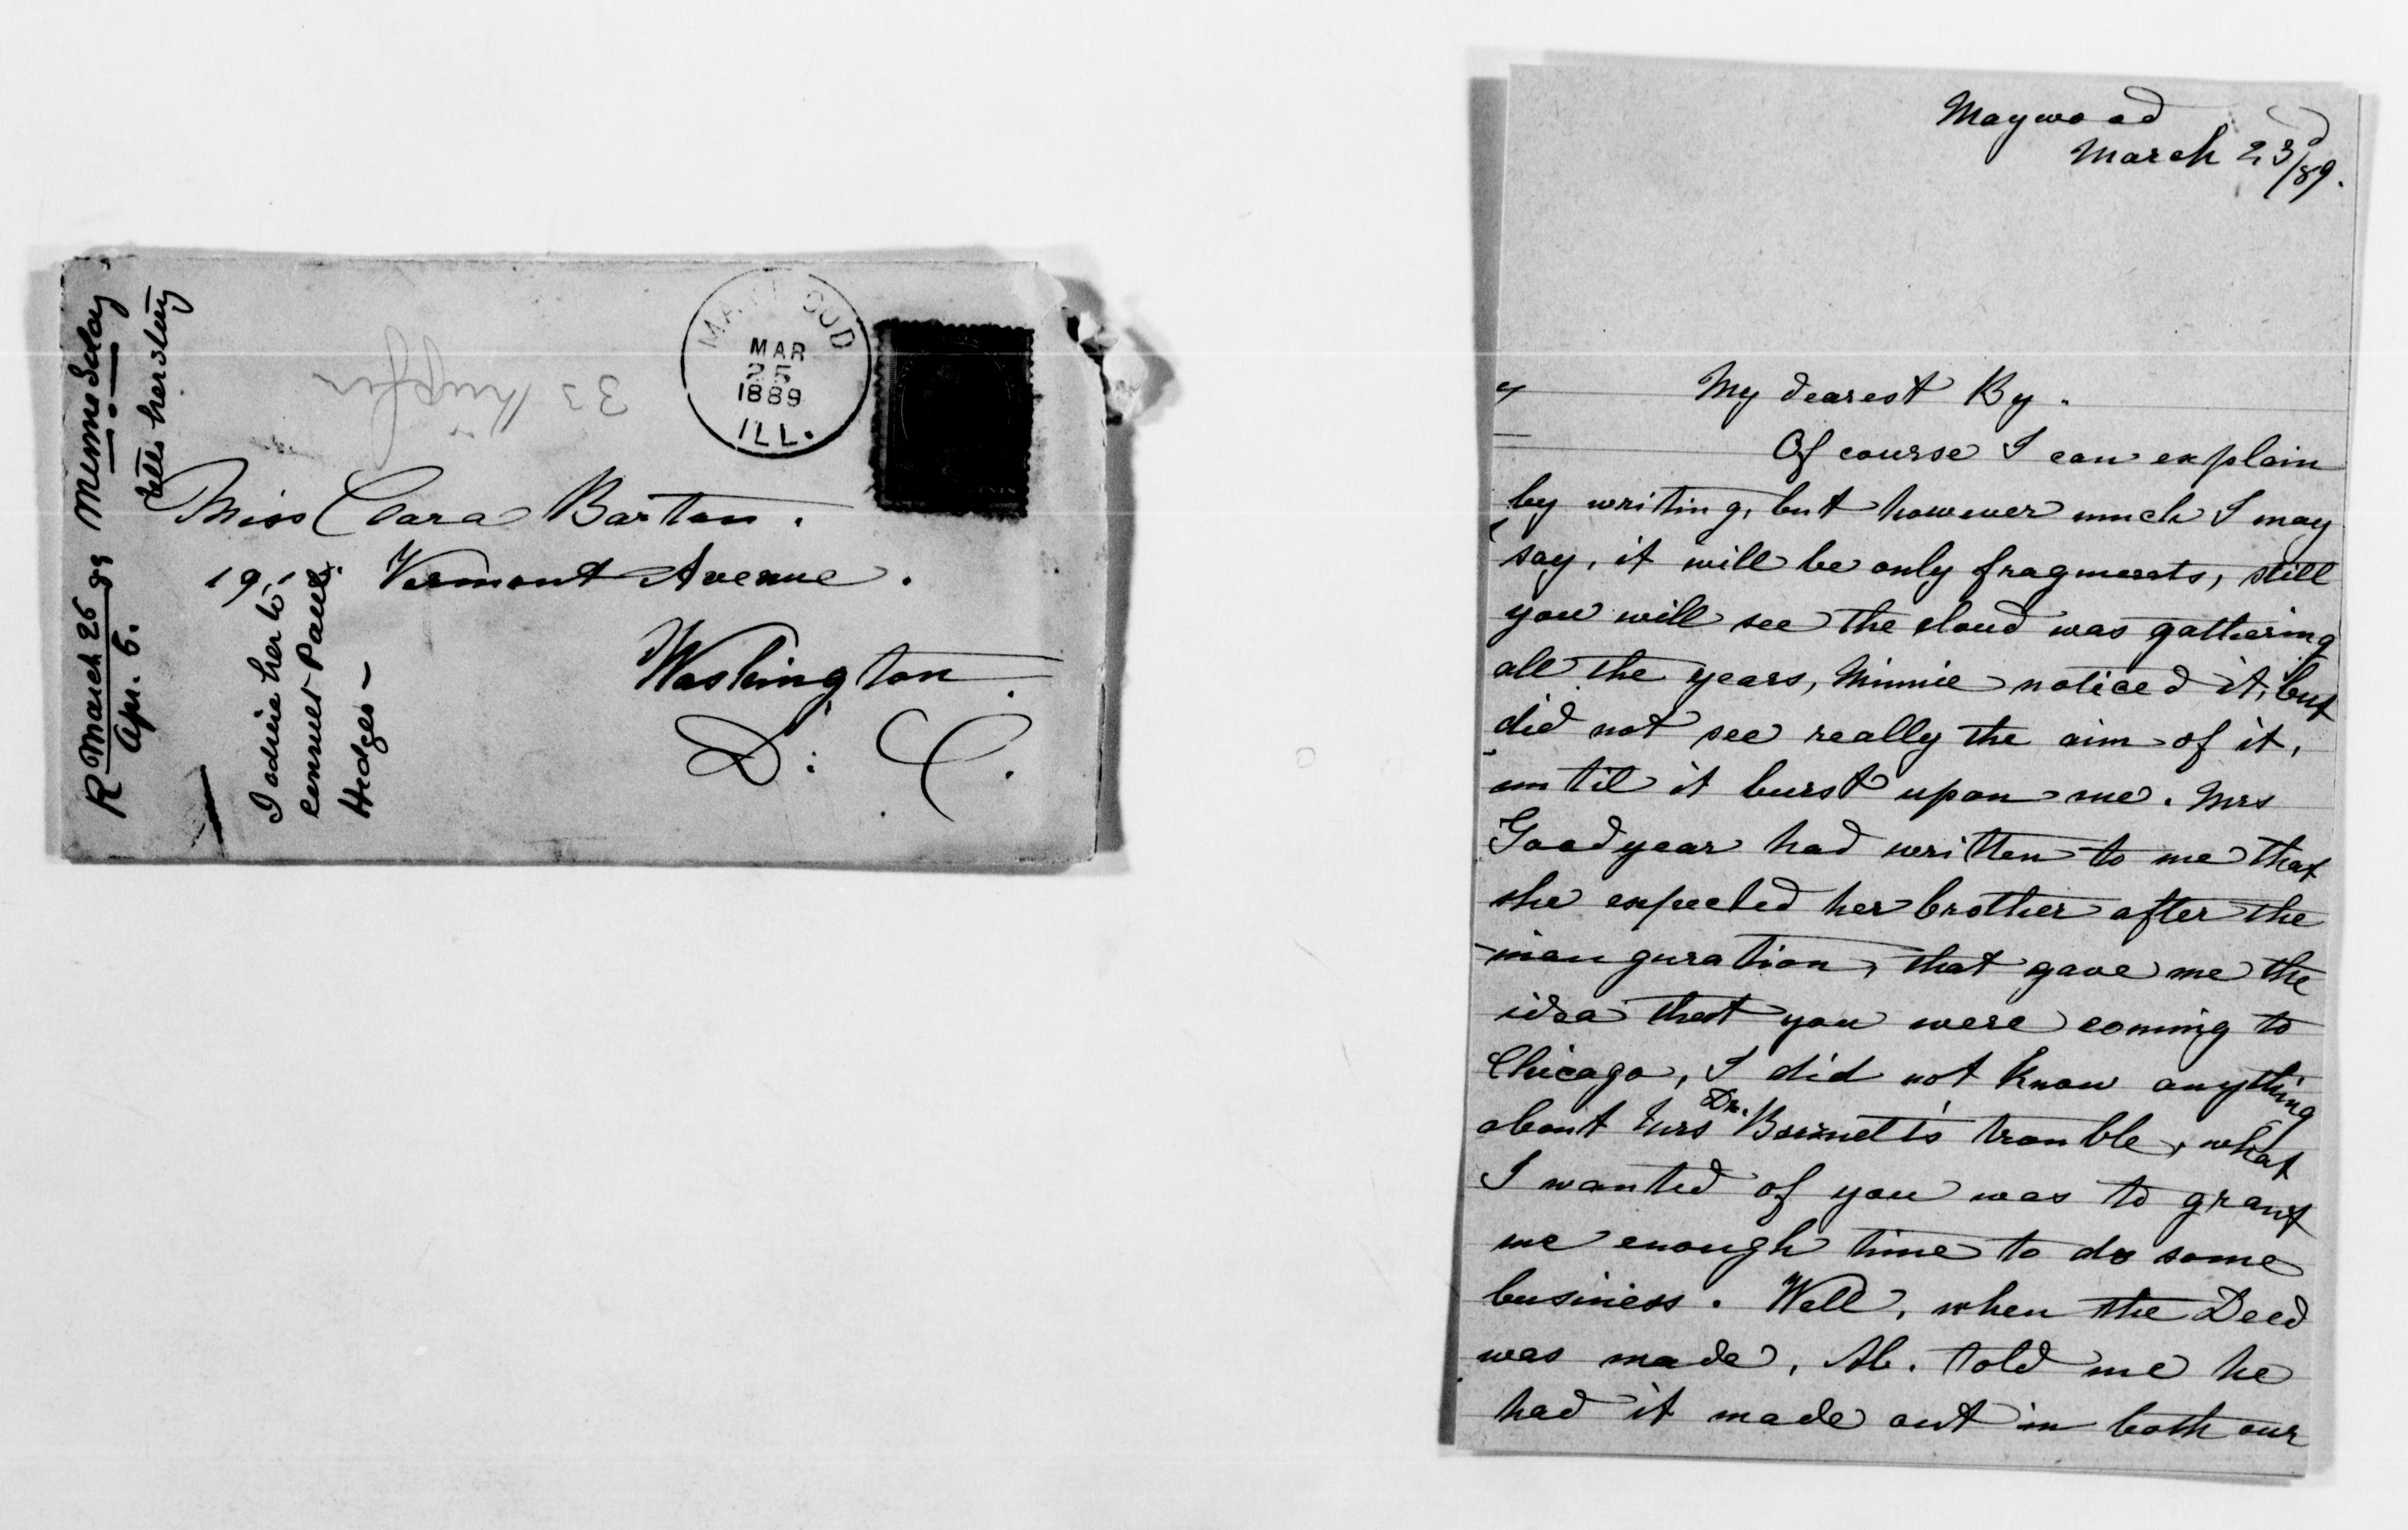 R March 26 89 Minnie
Apr. 5. tells her story
I advise her to
consult Paul &
Hedges —
MAYWOOD
MAR
25
1889
ILL.
33
Miss Clara Barton.
191 Vermont Avenue.
Washington.
D. C.
Maywood
March 23d/89.
My dearest By.
Of course I can explain
by writing, but however much I may
say, it will be only fragments, still
you will see the cloud was gathering
all the years, Minnie noticed it, but
did not see really the aim of it,
until it burst upon me. Mrs
Goodyear had written to me that
she expected her brother after the
inauguration, that gave me the
idea that you were coming to
Chicago, I did not know anything
about Mrs Dr. Burnett's trouble, what
I wanted of you was to grant
me enough time to do some
business. Well, when the Deed
was made, Ab. told me he
had it made out in both our